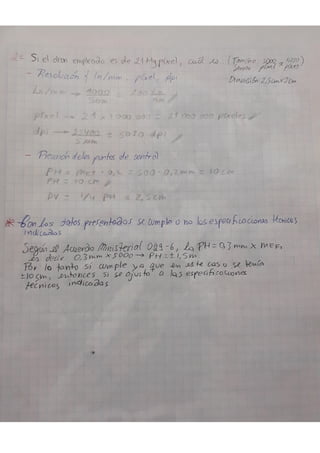 2= Si el dron empleado es de 21 Mg pixel, cuál es (Tamaño 5000 x 4200
ancho pixel pixel
- Resolución { ln/mm, pixel, dpi Dimensión 2,5cm x 2cm
Ln/mm → 4000
5mm
pixel → 21 x 1 000 000 = 21 000 000 pixeles
dpi → 25400 = 5080 dpi
5 mm
- Precisión de los puntos de control
PH = MEF · 0,2 = 500 · 0,2mm = 10cm
PH = 10 cm
PV = 1/4 PH = 2,5cm
* Con los datos presentados se cumple o no las especificaciones técnicas
indicadas
Según el Acuerdo Ministerial 029-6, la PH = 0,3 mm x MEF,
es decir 0.3mm x 5000 → PH = ±1,5m.
Por lo tanto si cumple ya que en este caso se tenía
±10cm, entonces si se ajusta a las especificaciones
técnicas indicadas